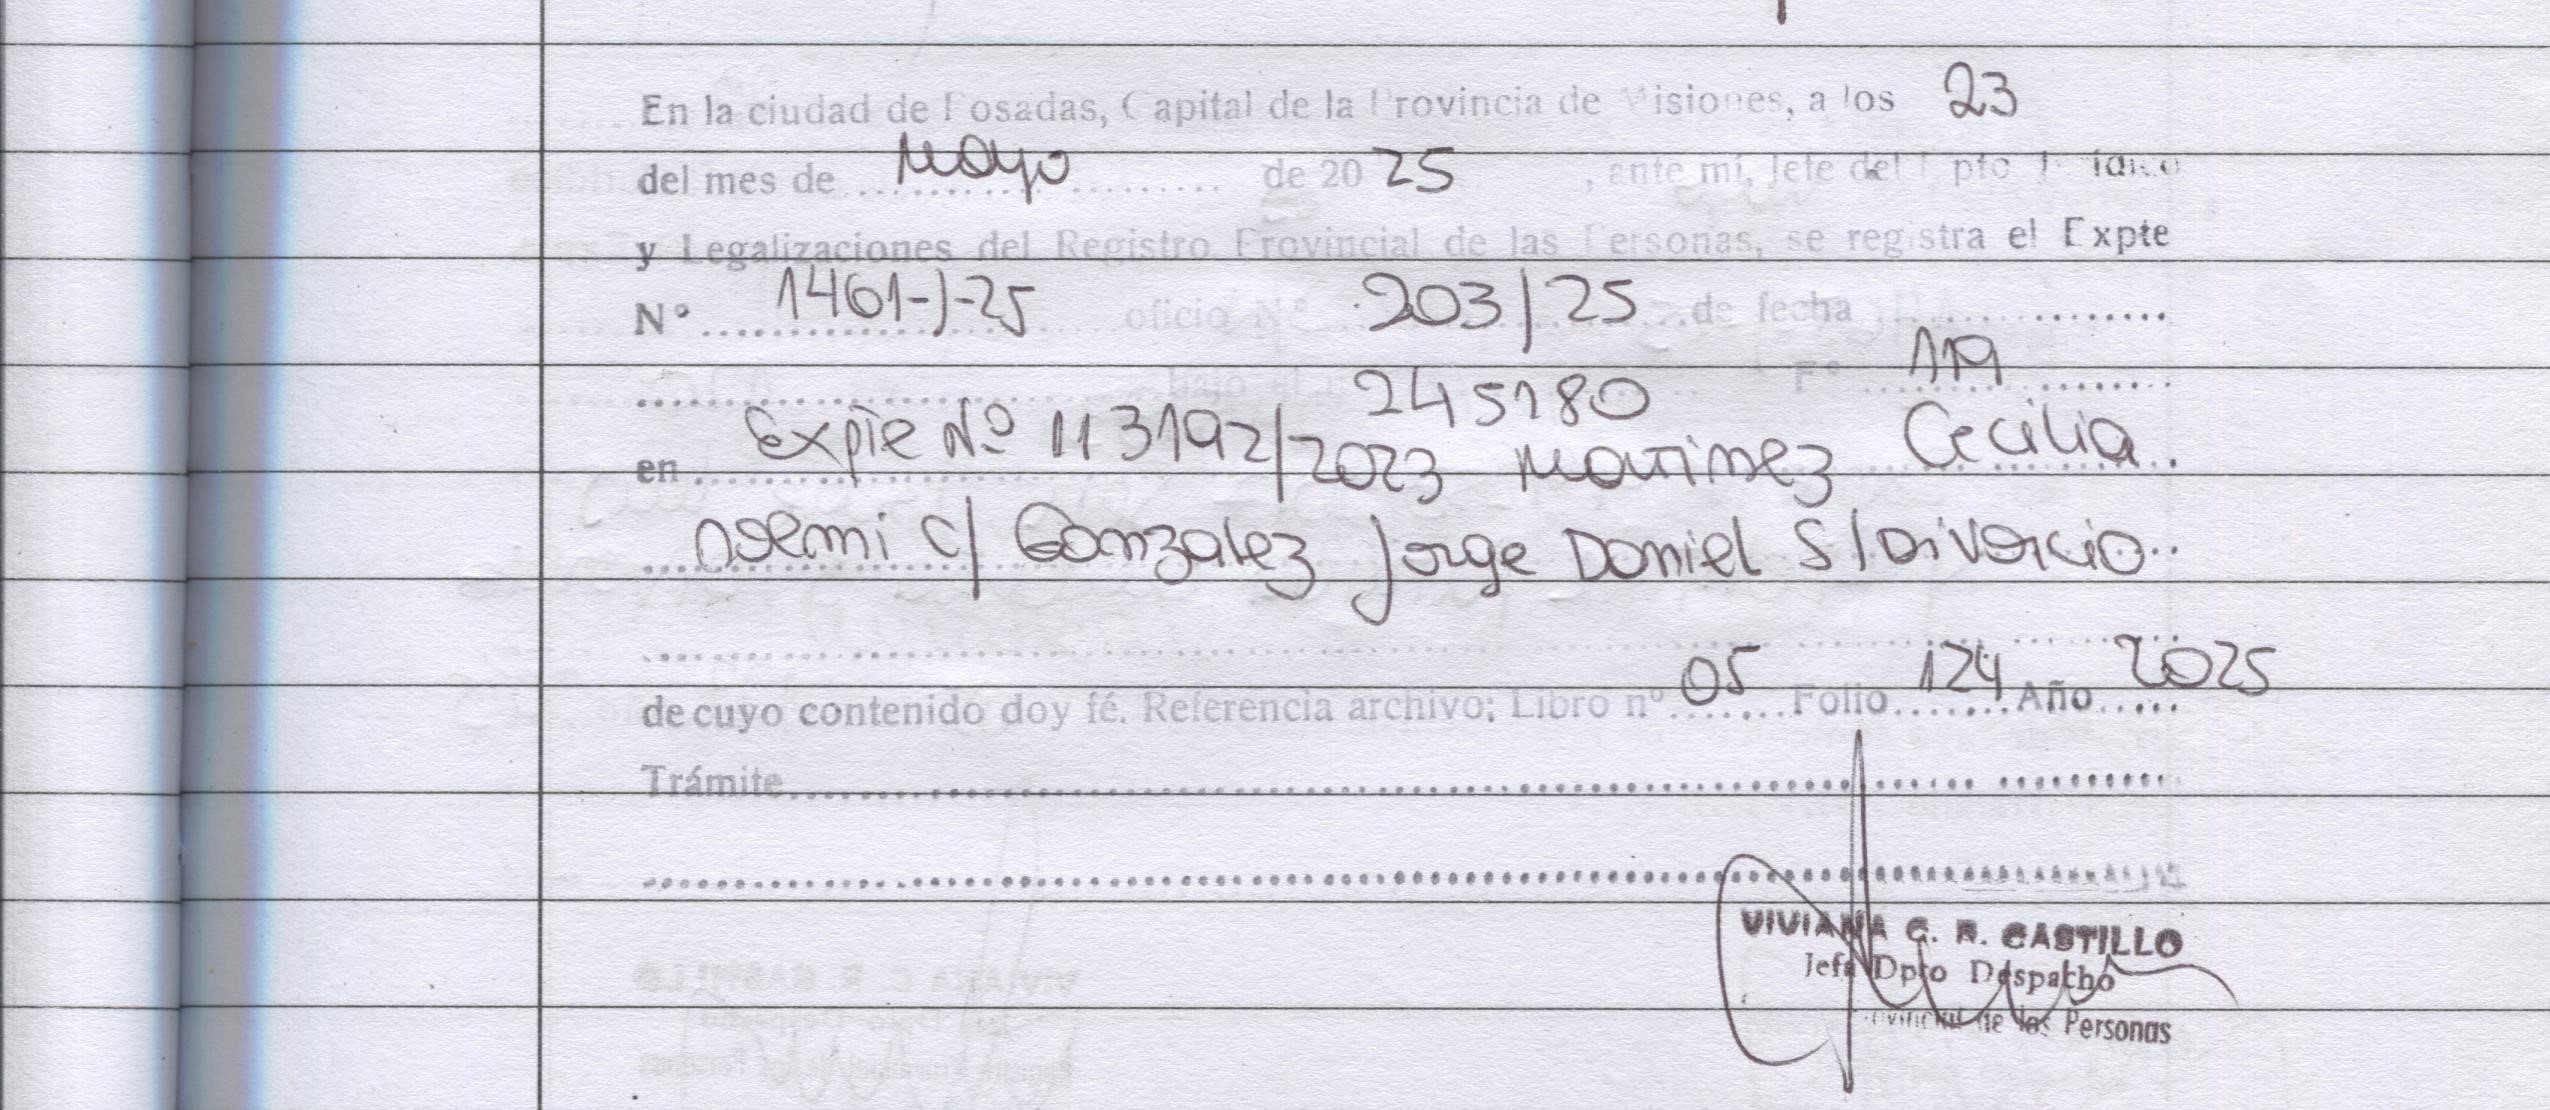 En la ciudad de Posadas, Capital de la Provincia de Misiones, a los 23
del mes de mayo de 20 25, ante mí, Jefe del Dpto
y Legalizaciones del Registro Provincial de las Personas, se registra el Expte
N° 1461-J-25 oficio N° 203/25 de fecha
bajo 245180 F° 119
en Expte Nº 113192/2023 Martinez Cecilia
noemi c/ Gonzalez Jorge Daniel S/Divorcio
de cuyo contenido doy fé. Referencia archivo: Libro nº 05 Folio 124 Año 2025
Trámite
VIVIANA C. R. CASTILLO
Jefa Dpto Despacho
Provincial de las Personas